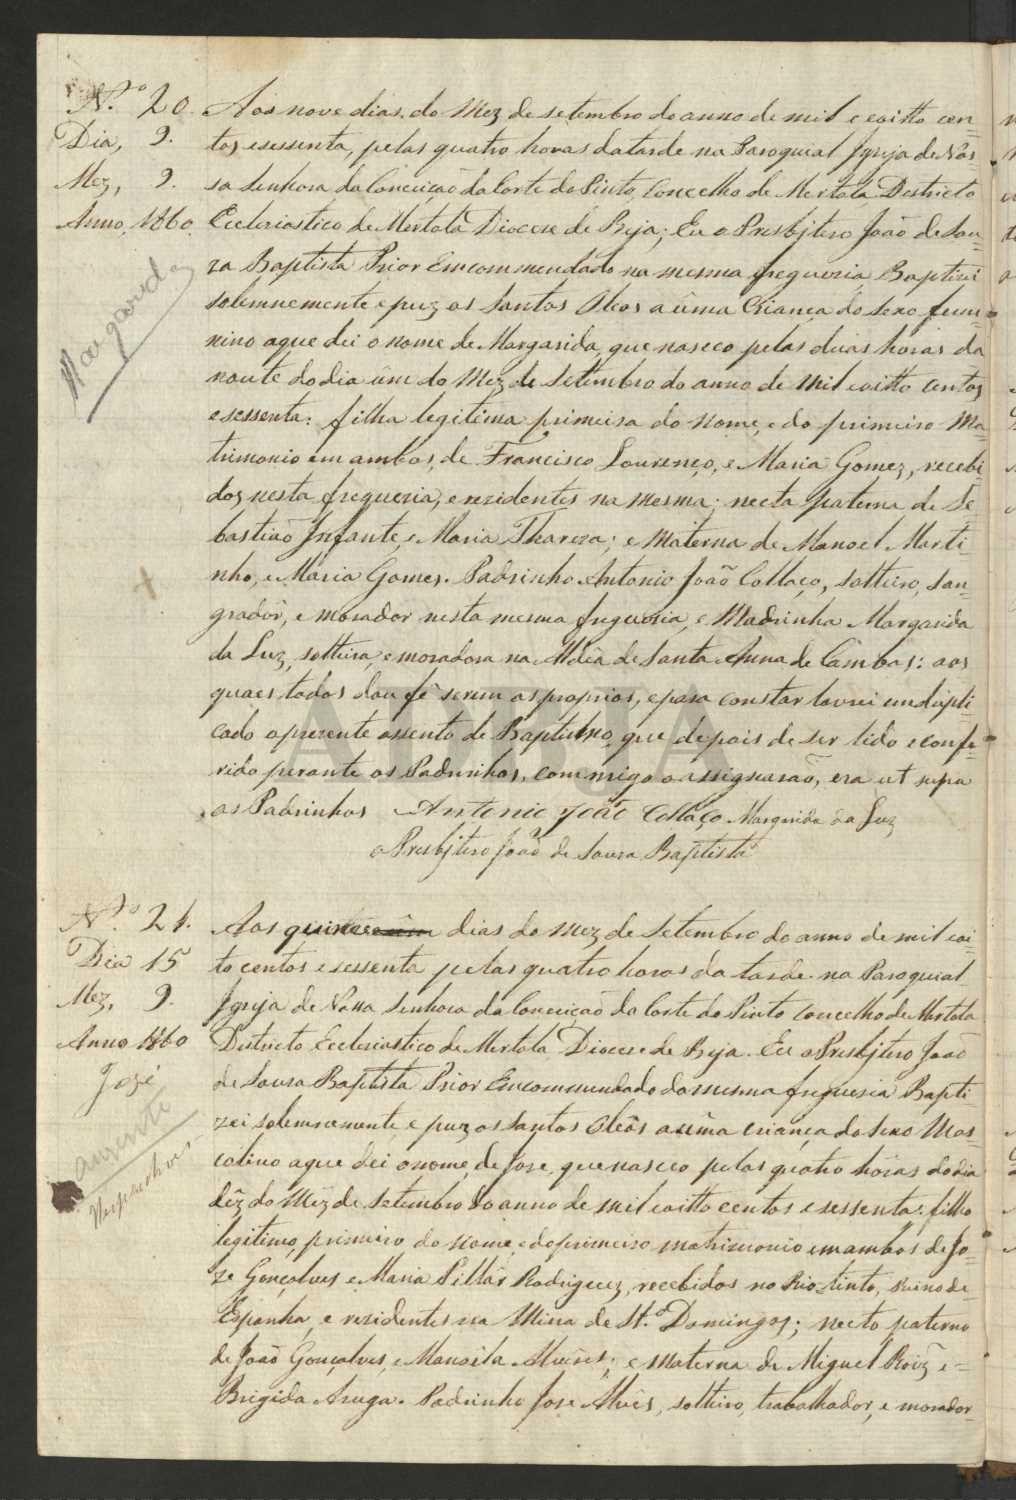 N.º 20.
Dia, 9.
Mez, 9.
Anno, 1860.
Margarida
Aos nove dias do Mez de setembro do anno de mil e coitto cen-
tos esessenta, pelas quatro horas datarde na Paroquial Igreja de Nos-
sa Senhora da Conceiçaõ da Corte do Pinto, Concelho de Mertola Destricto
Ecclesiastico de Mertola Diocese de Beja; Eu o Presbjtero Joaõ de Sou-
za Baptista Prior Emcommendado na mesma freguezia Baptizei
solemnemente e puz os Santos Oleos a uma Criança do Sexo femi-
nino aque dei o nome de Margarida, que nasceo pelas duas horas da
noute do dia um do Mez de Settembro do anno de Mil coitto centos
esessenta: filha legitima primeira do Nome, e do primeiro Ma-
trimonio em ambos, de Francisco Lourenço, e Maria Gomez, recebi-
dos nesta freguezia, e rezidentes na mesma; necta paterna de Se-
bastiaõ Infante, e Maria Thareza; e Materna de Manoel Marti-
nho, e Maria Gomes. Padrinho Antonio Joaõ Collaço, solteiro, san-
grador, e morador nesta mesma freguezia, e Madrinha Margarida
da Luz, solteira, e moradora na Aldêa de Santa Anna de Cambas: aos
quaes todos dou fé serem os proprios, e para constar lavrei em dupli-
cado o prezente assento de Baptismo, que depois de ser lido e confe-
rido perante os Padrinhos, commigo o assignaraõ, era ut supra
os Padrinhos Antonio Joaõ Collaço Margarida da Luz
o Presbjtero Joaõ de Souza Baptista
N.º 21.
Dia 15
Mez, 9.
Anno 1860
José
auzente
Aos quinze dias do Mez de Setembro do anno de mil coi-
to centos e sessenta pelas quatro horas da tarde na Paroquial
Igreja de Nossa Senhora da Conceiçaõ da Corte do Pinto Concelho de Mertola
Destricto Ecclesiastico de Mertola Diocese de Beja. Eu o Presbjtero Joaõ
de Souza Baptista Prior Emcommendado da mesma freguezia Bapti-
zei solemnemente e puz os Santos Oleos a uma criança do Sexo Mas-
colino aque dei o nome, de Jose, que nasceo pelas quatro horas do dia
dêz do Mêz de Setembro do anno de mil coitto centos e sessenta: filho
legitimo, primeiro do nome, e do primeiro matrimonio em ambos de Jo-
ze Gonçalves e Maria Pillar Rodriguez, recebidos no Rio tinto, Reino de
Espanha, e rezidentes na Mina de St.º Domingos; necto paterno
de Joaõ Gonçalves, e Manoela Alvêres; e materna de Miguel Roiz e-
Brigida Aruga. Padrinho Jose Alvês, solteiro, trabalhador, e morador-